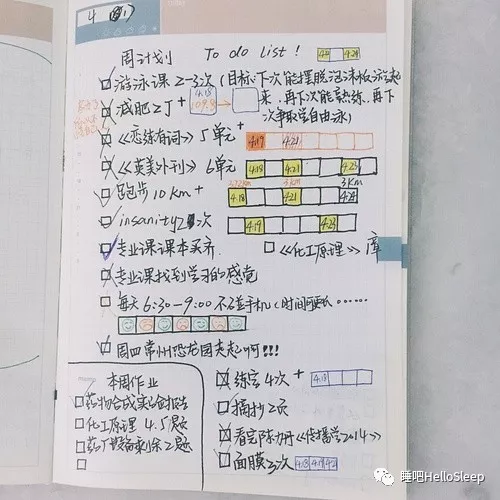 4 (周1)
周计划 To do list! 4.18 4.24
游泳课2-3次(目标:下次能摆脱泡沫板游起
来,再下次能熟练,再下
次争取学自由泳)
减肥2斤+ 4.18 109.8 →
《恋练有词》5单元+ 4.19 4.21
《英美外刊》6单元 4.18 4.21 4.23
跑步10km+ 3km 3km
4.18 4.21 4.24
insanity2次 4.19 4.23
专业课课本买齐 《化工原理》库
专业课找到学习的感觉
每天6:30-9:00不碰手机(时间
周四常州恐龙园走起啊!!!
本周作业
药物合成实验报告
化工原理4.5题
药厂设备剩余2题
练字4次+ 4.18
摘抄2页
看完陈丹《传播学2014》
面膜3次 4.18 4.19
睡吧HelloSleep